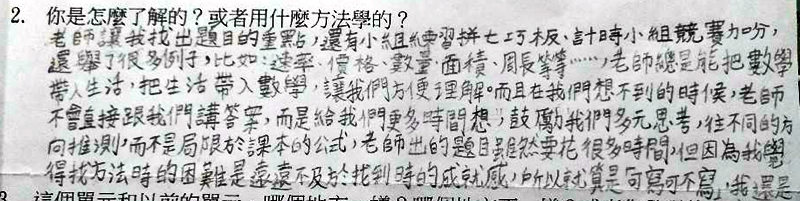 2. 你是怎麼了解的？或者用什麼方法學的？
老師讓我找出題目的重點，還有小組練習拼七巧板、計時小組競賽加分，
還舉了很多例子，比如：速率、價格、數量、面積、周長等等……，老師總是能把數學
帶入生活，把生活帶入數學，讓我們方便理解。而且在我們想不到的時候，老師
不會直接跟我們講答案，而是給我們更多時間想，鼓勵我們多元思考，往不同的方
向推測，而不是局限於課本的公式，老師出的題目雖然要花很多時間，但因為我覺
得找方法時的困難是遠遠不及於找到時的成就感，所以就算是可寫可不寫，我還是